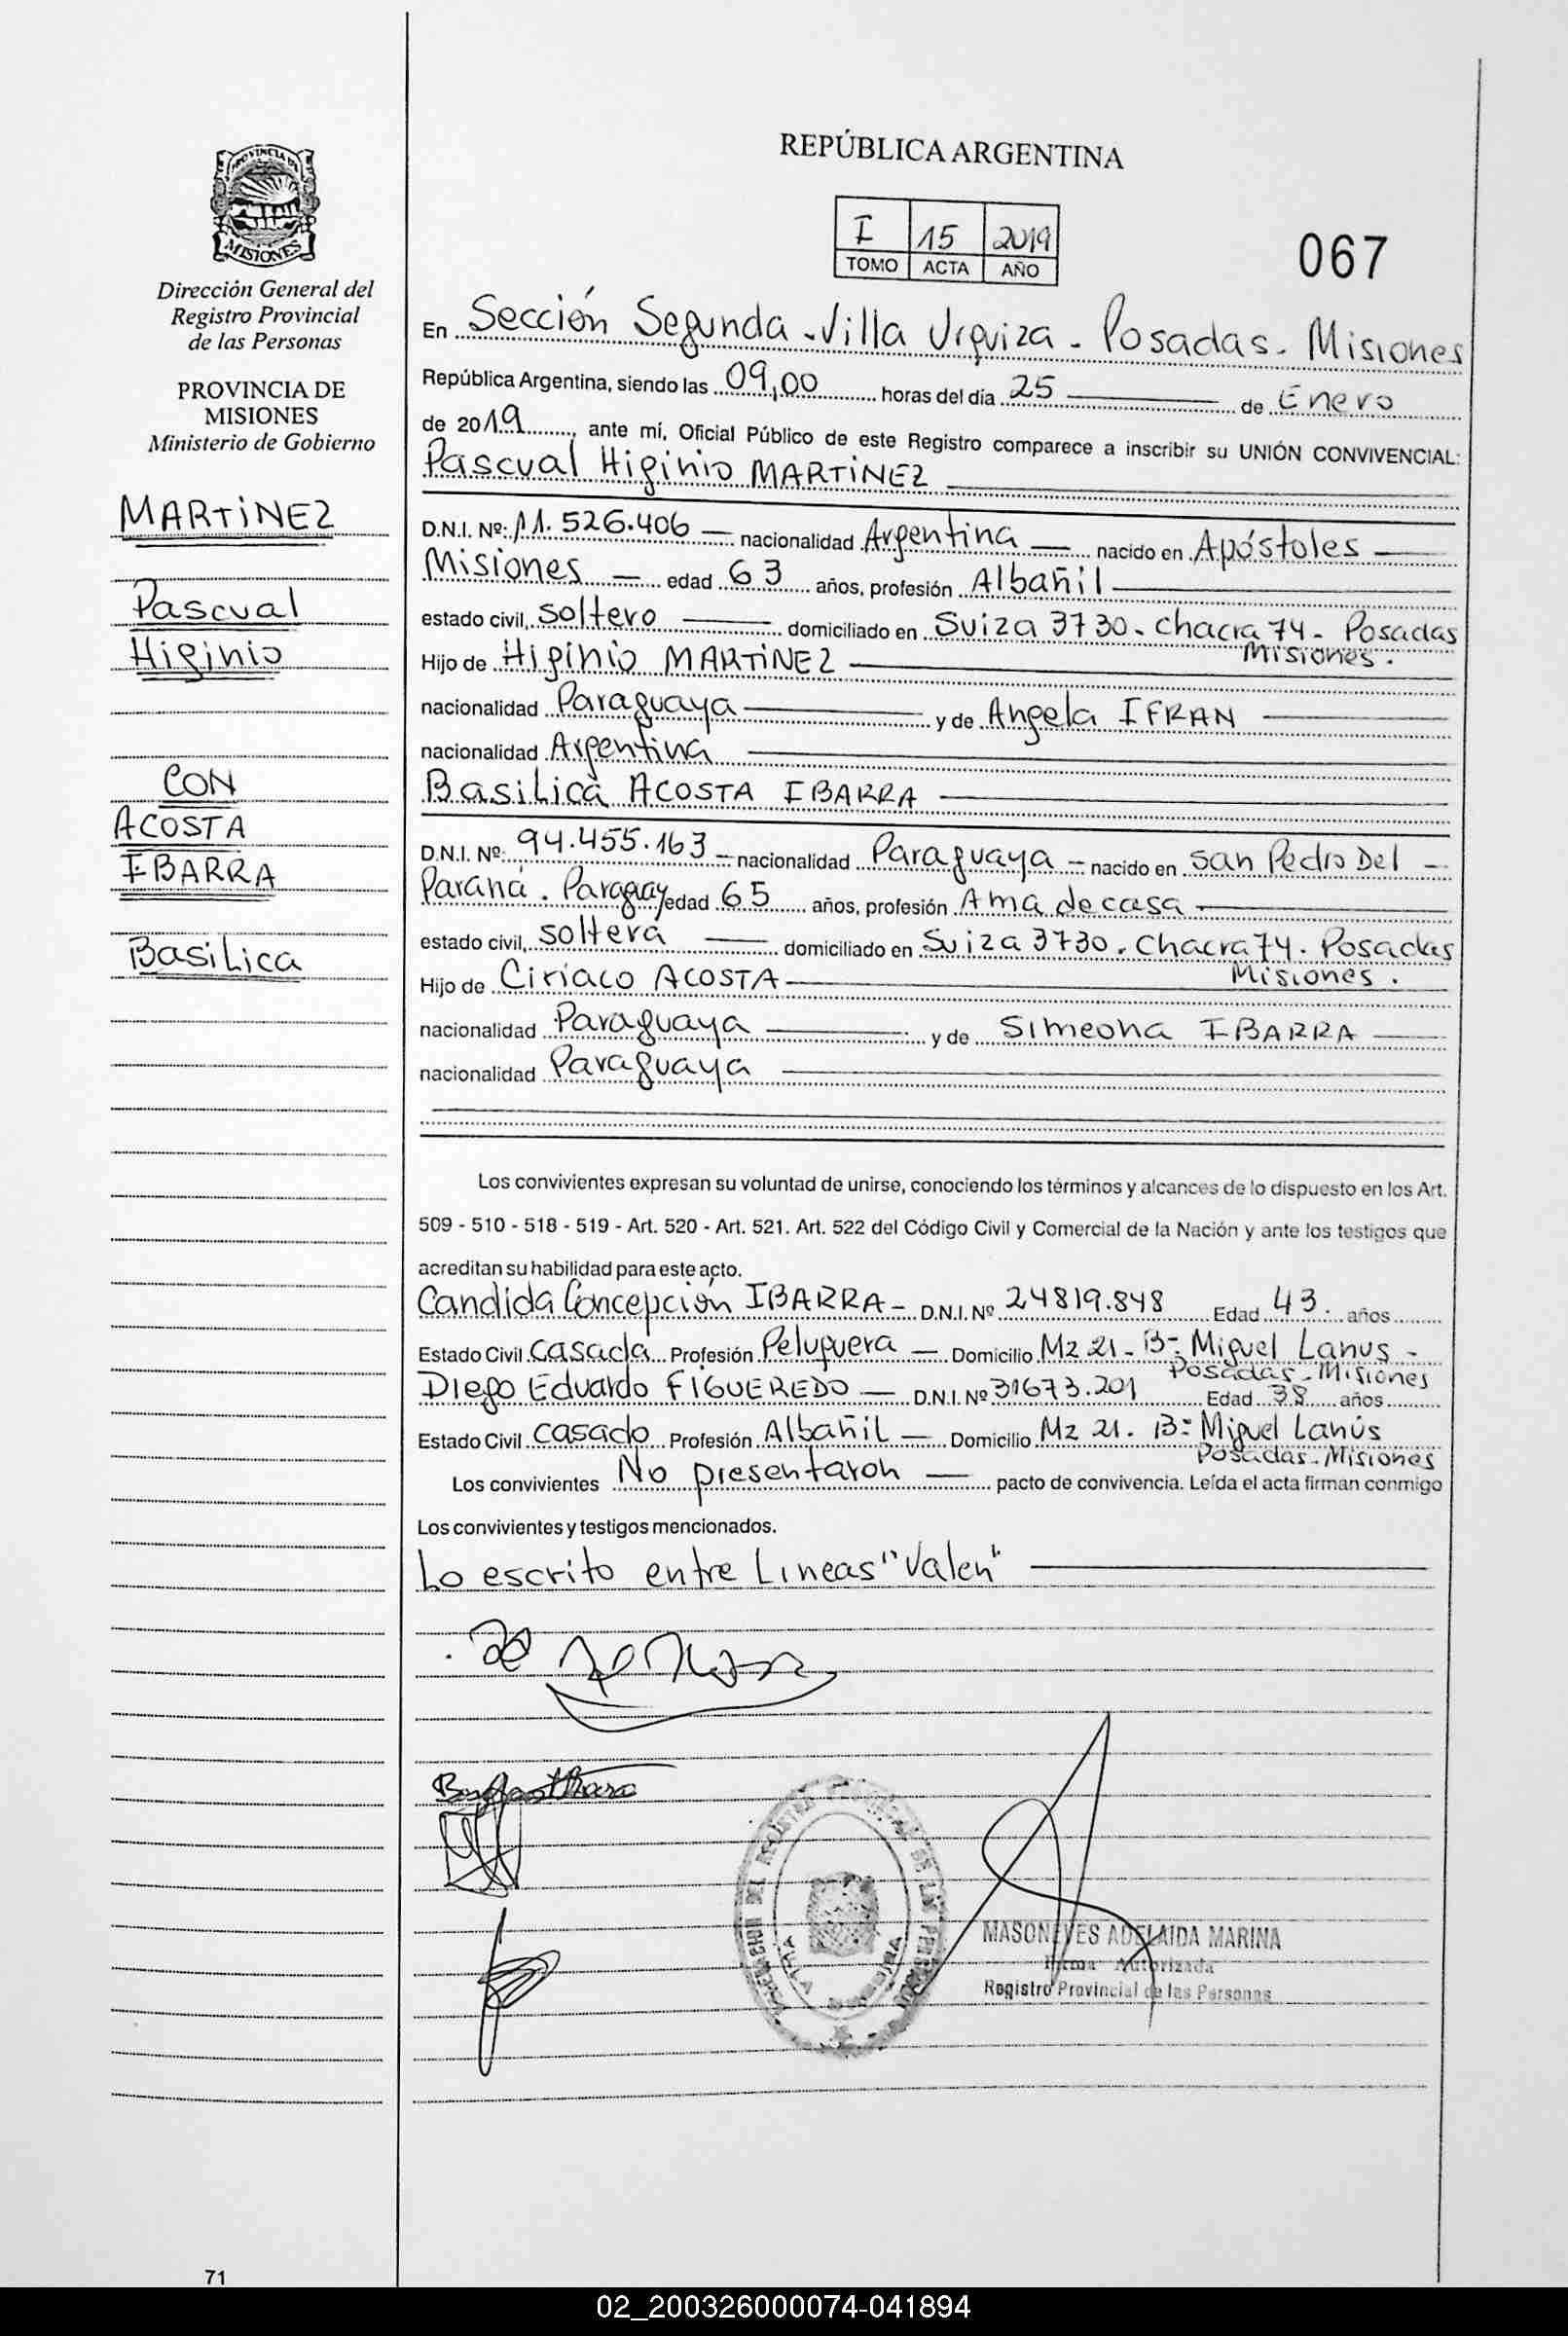 PROVINCIA DE
MISIONES
Dirección General del
Registro Provincial
de las Personas
PROVINCIA DE
MISIONES
Ministerio de Gobierno
MARTiNEZ
Pascual
Higinio
CON
ACOSTA
IBARRA
BasiLica
71
REPÚBLICA ARGENTINA
I 15 2019
TOMO ACTA AÑO
067
En Sección Segunda - Villa Urquiza - Posadas - Misiones
República Argentina, siendo las 09,00 horas del día 25 de Enero
de 2019, ante mí, Oficial Público de este Registro comparece a inscribir su UNIÓN CONVIVENCIAL:
Pascual Higinio MARTiNEZ
D.N.I. Nº: 11.526.406 — nacionalidad Argentina — nacido en Apóstoles —
Misiones — edad 63 años, profesión Albañil
estado civil, soltero — domiciliado en Suiza 3730 - chacra 74 - Posadas
Misiones.
Hijo de Higinio MARTiNEZ
nacionalidad Paraguaya — y de Angela IFRAN
nacionalidad Argentina
BasiLica ACOSTA IBARRA
D.N.I. Nº: 94.455.163 — nacionalidad Paraguaya — nacido en san Pedro Del —
Paraná. Paraguay edad 65 años, profesión Ama de casa
estado civil, soltera — domiciliado en Suiza 3730. Chacra 74. Posadas
Misiones.
Hijo de Ciriaco ACOSTA
nacionalidad Paraguaya — y de Simeona IBARRA
nacionalidad Paraguaya
Los convivientes expresan su voluntad de unirse, conociendo los términos y alcances de lo dispuesto en los Art.
509 - 510 - 518 - 519 - Art. 520 - Art. 521. Art. 522 del Código Civil y Comercial de la Nación y ante los testigos que
acreditan su habilidad para este acto.
Candida Concepción IBARRA - D.N.I. Nº 24819.848 Edad 43. años
Estado Civil casada Profesión Peluquera — Domicilio Mz 21 - B= Miguel Lanus -
Posadas - Misiones
Diego Eduardo FiGUEREDO — D.N.I. Nº 31673.201 Edad 38 años
Estado Civil casado Profesión AlbañiL — Domicilio Mz 21. B= Miguel Lanús
Posadas - Misiones
Los convivientes No presentaron — pacto de convivencia. Leída el acta firman conmigo
Los convivientes y testigos mencionados.
Lo escrito entre Lineas "Valen"
MASONEVES ADELAIDA MARINA
Firma Autorizada
Registro Provincial de las Personas
02_200326000074-041894